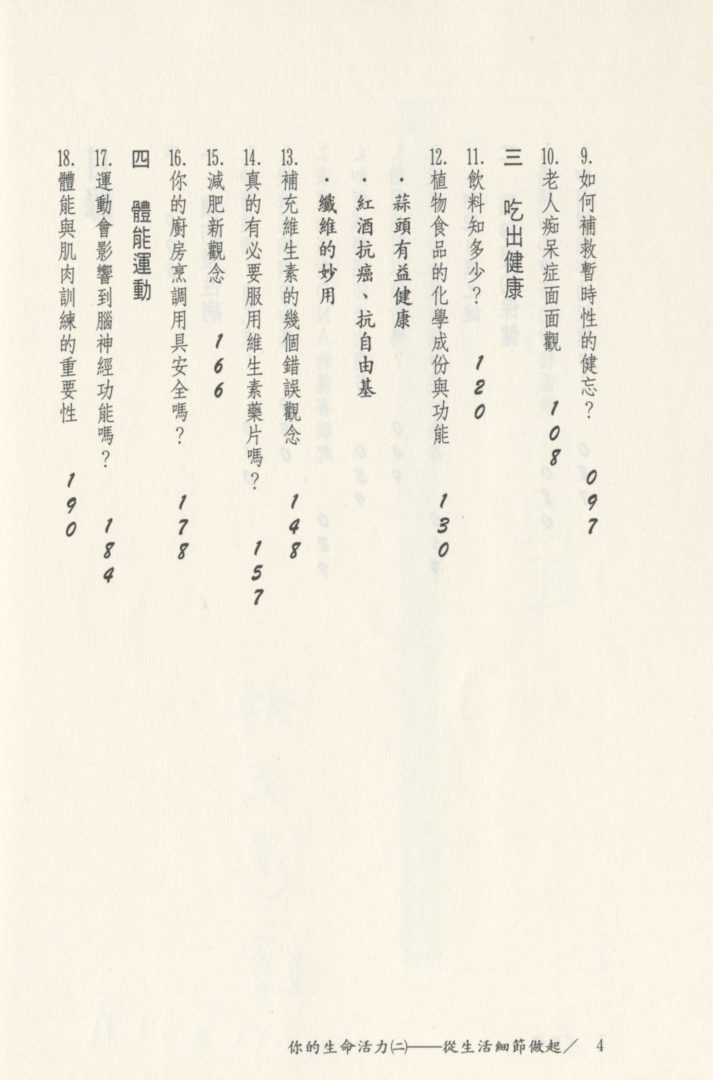 9.如何補救暫時性的健忘？ 097
10.老人痴呆症面面觀 108
三 吃出健康
11.飲料知多少？ 120
12.植物食品的化學成份與功能 130
・蒜頭有益健康
・紅酒抗癌、抗自由基
・纖維的妙用
13.補充維生素的幾個錯誤觀念 148
14.真的有必要服用維生素藥片嗎？ 157
15.減肥新觀念 166
16.你的廚房烹調用具安全嗎？ 178
四 體能運動
17.運動會影響到腦神經功能嗎？ 184
18.體能與肌肉訓練的重要性 190
你的生命活力㈡——從生活細節做起／ 4